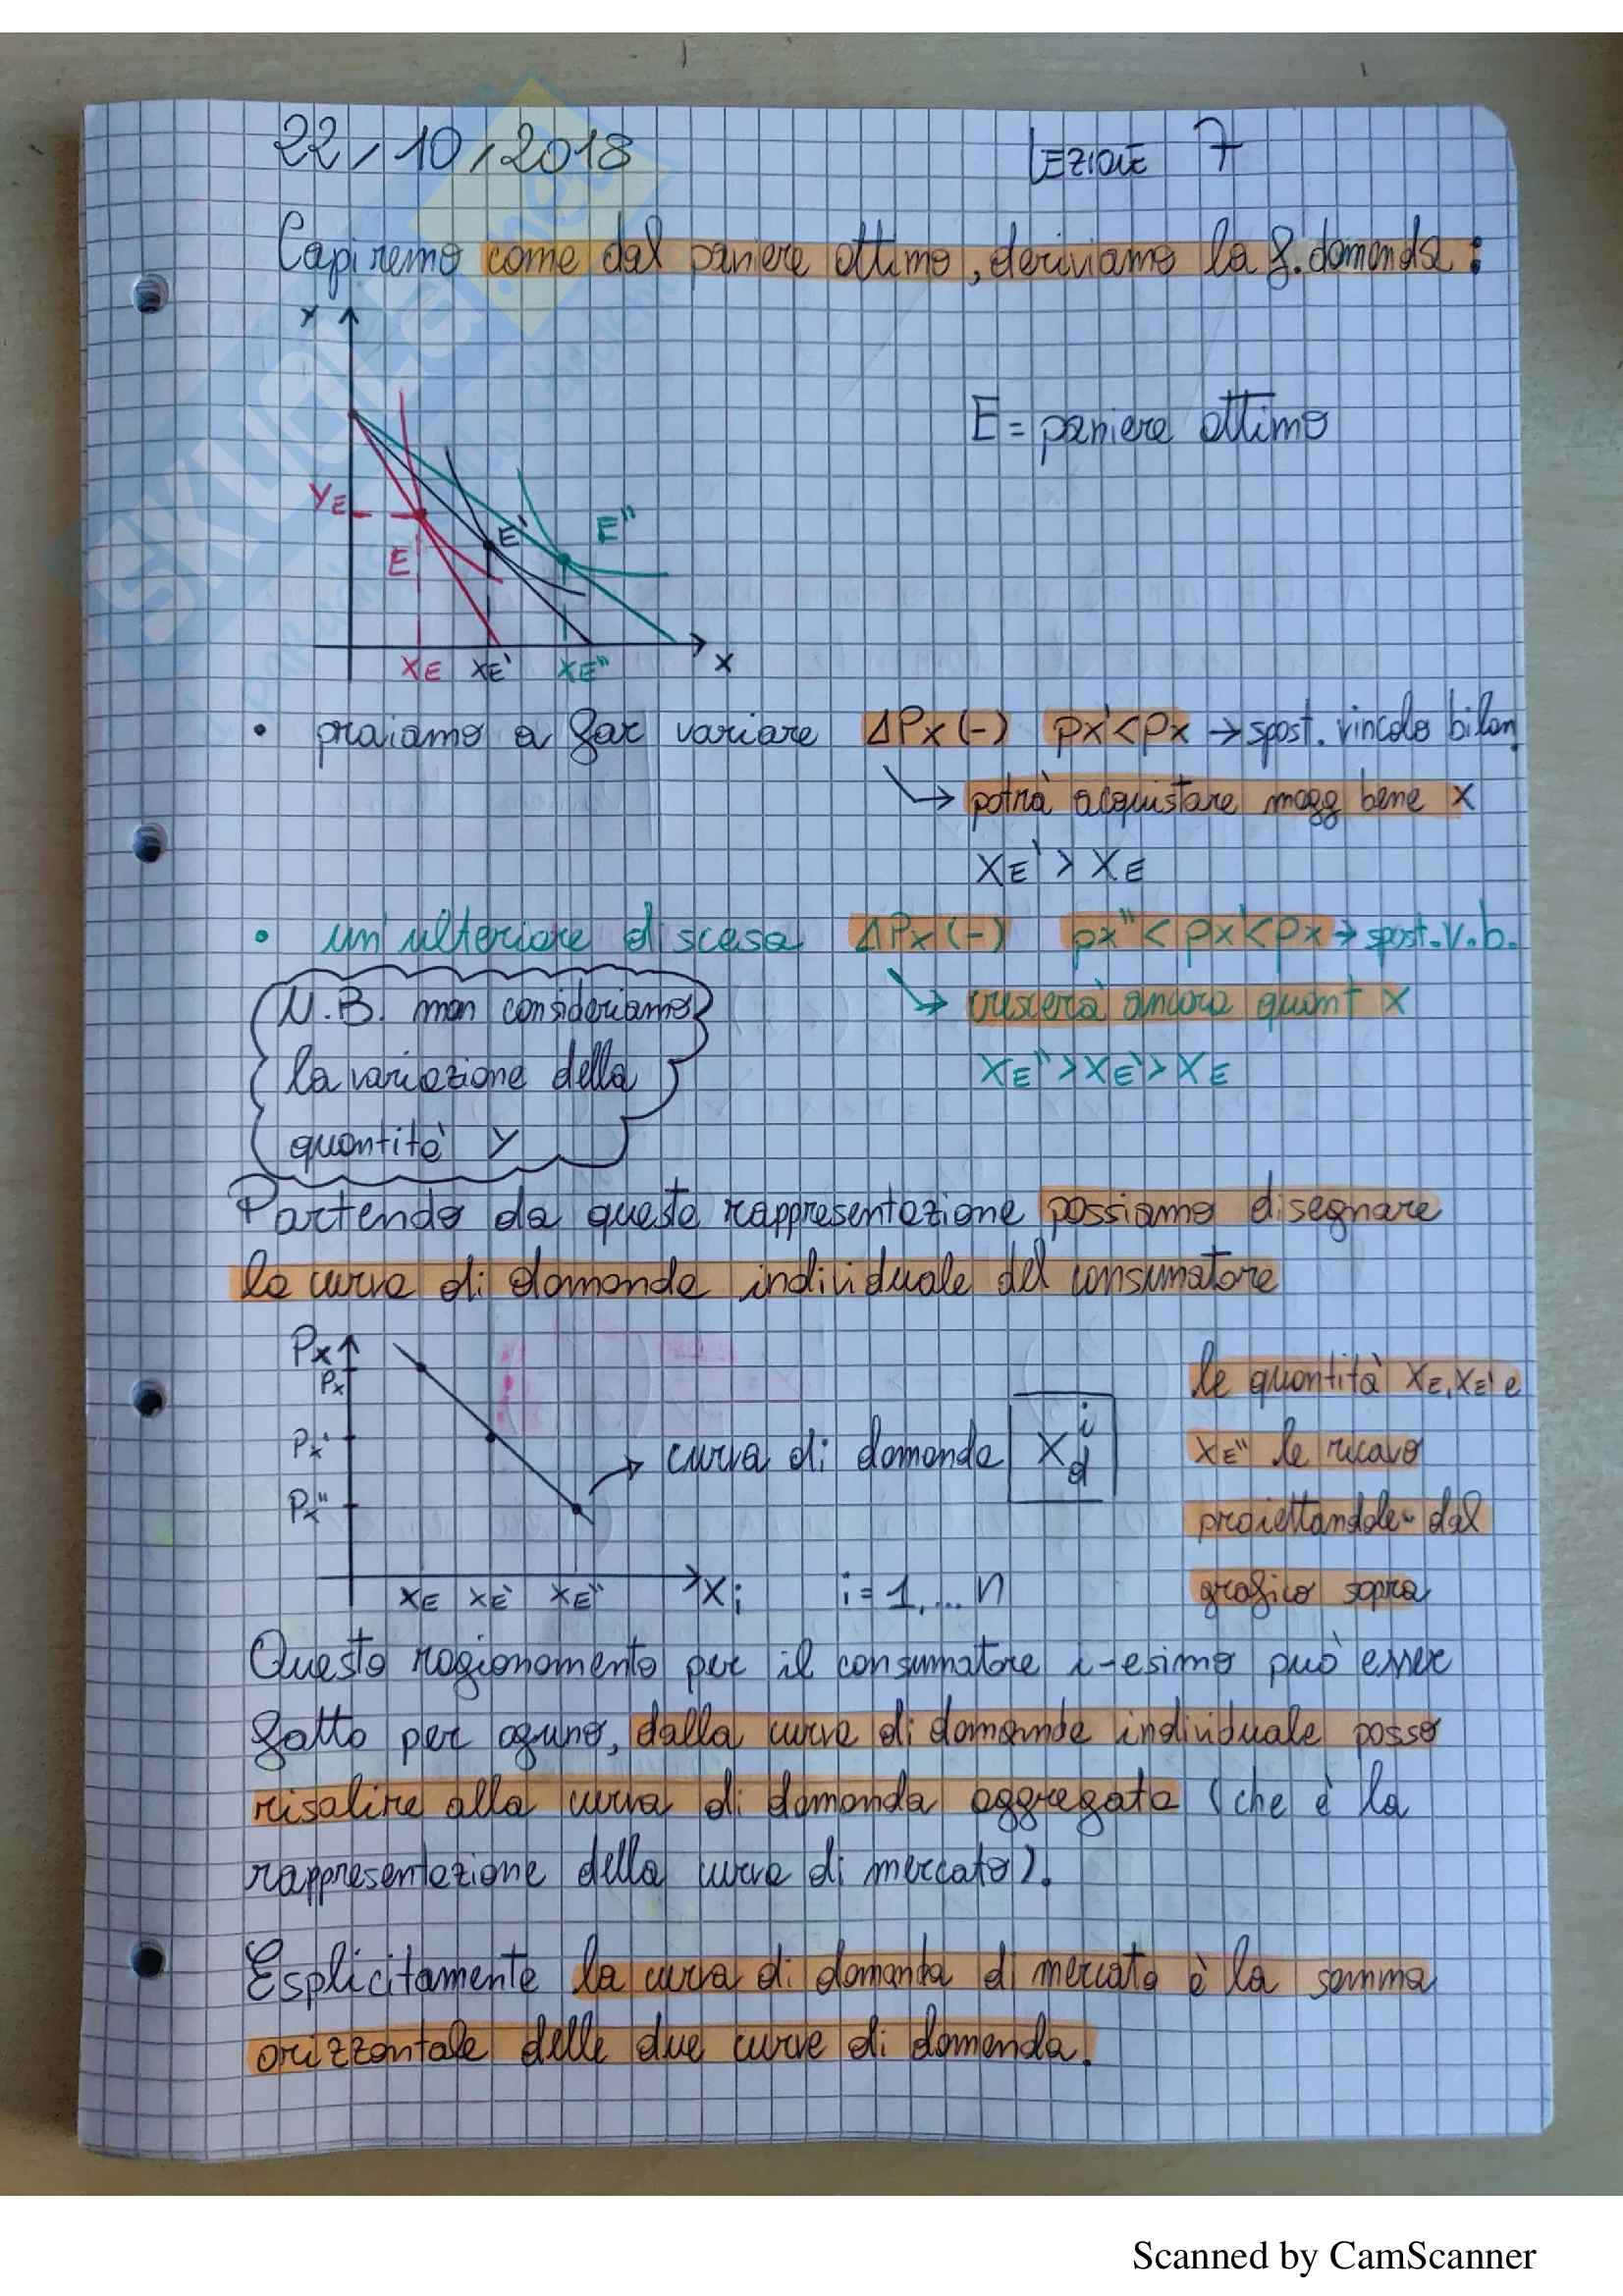 22/10/2018 LEZIONE 7
Capiremo come dal paniere ottimo, deriviamo la f. domanda:
Y
E = paniere ottimo
YE
E E' E''
XE XE' XE'' X
• proviamo a far variare ΔPx (-) px'<px → spost. vincolo bilan
→ potrà acquistare magg bene x
XE' > XE
• un'ulteriore discesa ΔPx (-) px''<px'<px → spost. v.b.
→ crescerà ancora quant x
XE''>XE'>XE
N.B. non consideriamo
la variazione della
quantità y
Partendo da questa rappresentazione possiamo disegnare
la curva di domanda individuale del consumatore
Px
Px
Px'
Px''
→ curva di domanda X i d
le quantità XE, XE' e
XE'' le ricavo
proiettandole dal
grafico sopra
XE XE' XE'' Xi i = 1,... n
Questo ragionamento per il consumatore i-esimo può esser
fatto per oguno, dalla curva di domanda individuale posso
risalire alla curva di domanda aggregata (che è la
rappresentazione della curva di mercato).
Esplicitamente la curva di domanda di mercato è la somma
orizzontale delle due curve di domanda.
SKUOLA.net
Scanned by CamScanner